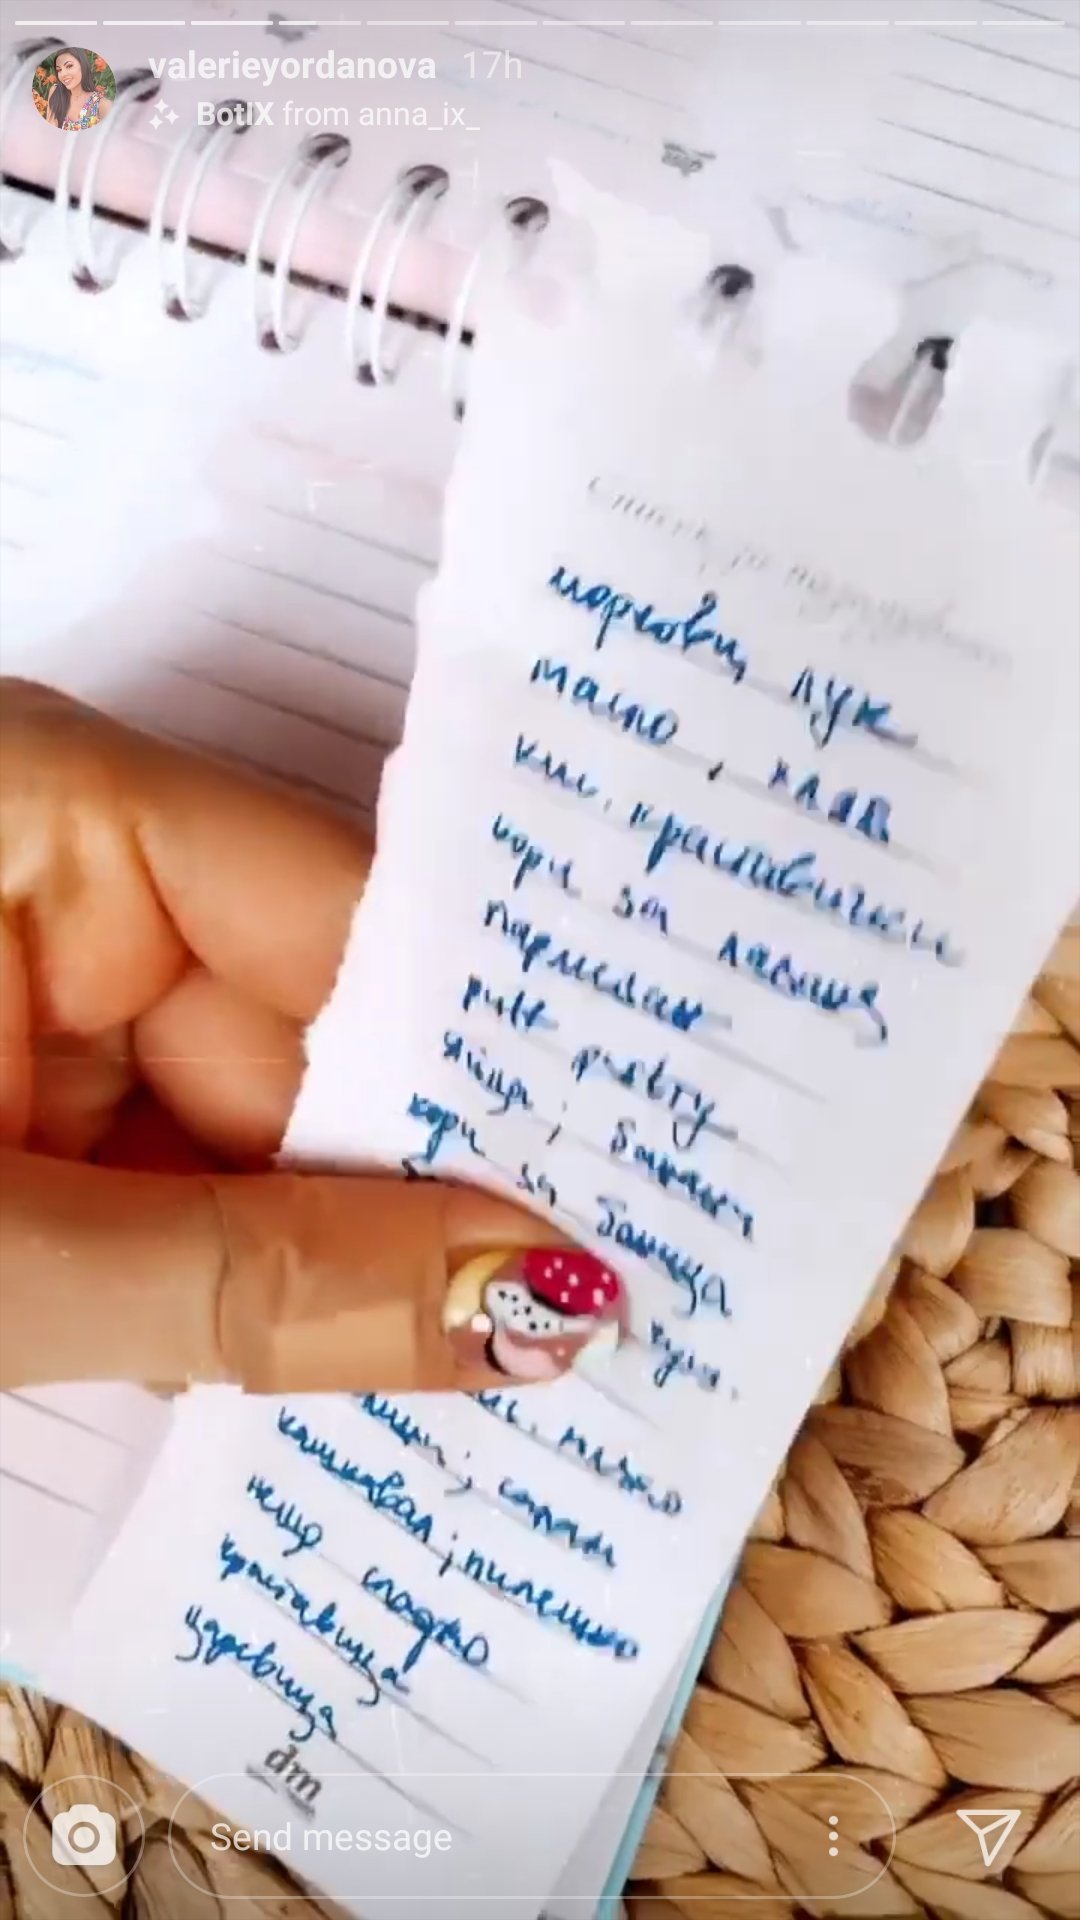 valerieyordanova 17h
BotIX from anna_ix_
Списък за пазаруване
моркови, лук
масло, хляб
кис. краставички
кори за лазаня
пармезан
puff pastry
яйца; банани
кори за баница
кум.
мляко
салам
кашкавал; пилешко
нещо сладко
краставица
царевица
dm
Send message